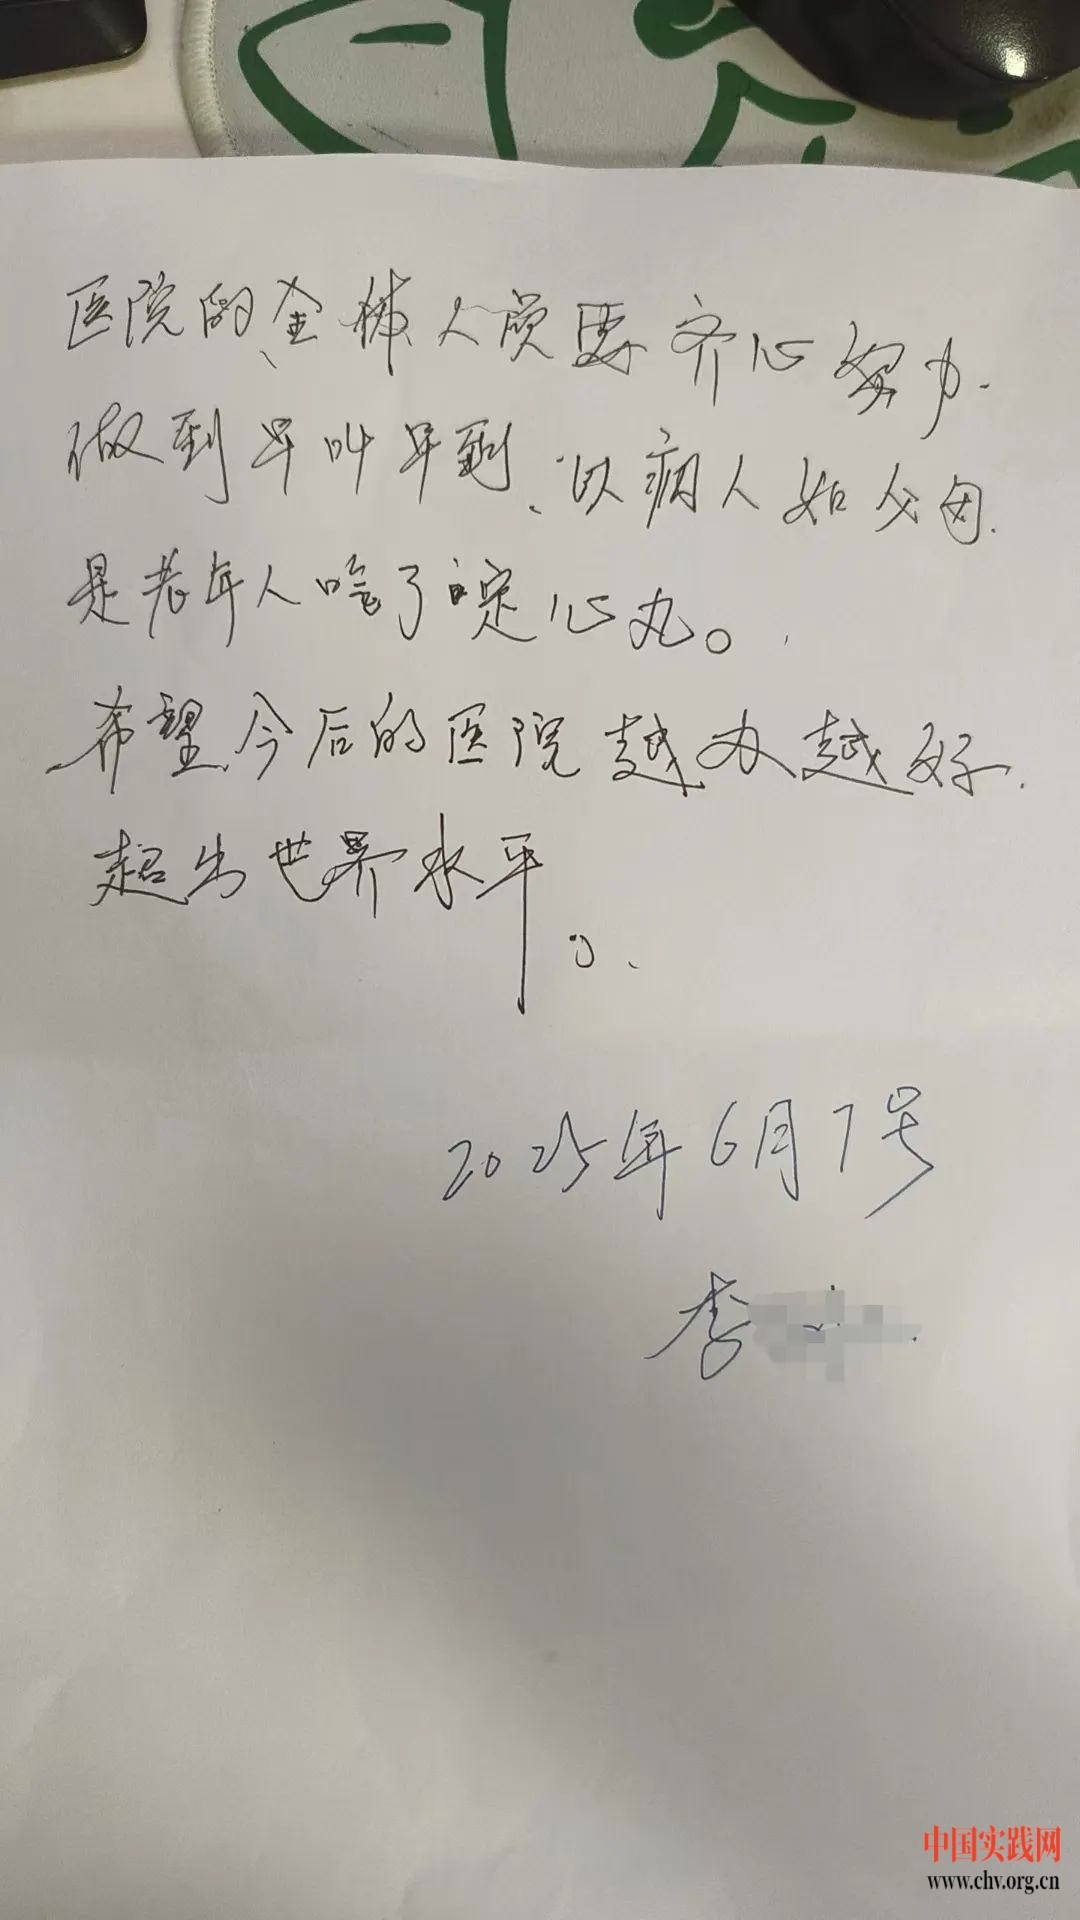 医院的全体人员要齐心努力.
做到早叫早到、以病人如父母.
是老年人吃了定心丸。
希望今后的医院越办越好.
超出世界水平。
2025年6月7号
李
中国实践网
www.chv.org.cn